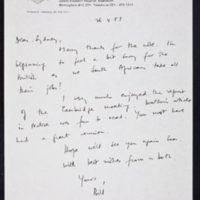 26.4.83
Dear Sydney,
Many thanks for the note. I'm
beginning to feel a bit sorry for the
British as we South Africans take all
their jobs!
I very much enjoyed the report
of the Cambridge meeting. Watson's article
in Nature was fun to read. You must have
had a great reunion.
Hope we'll see you again soon
with best wishes from us both
Yours,
Bill